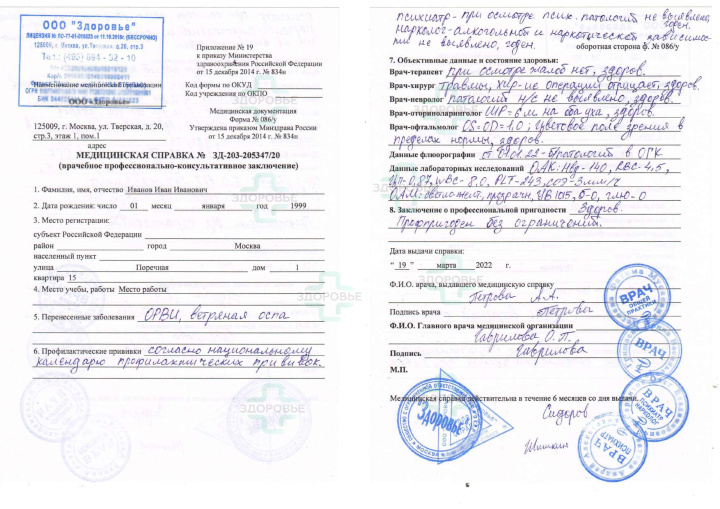 ООО "Здоровье"
125009, г. Москва, ул. Тверская, д.20, стр.3
Тел.: (495) 694 - 52 - 10
Наименование медицинской организации
ООО «Здоровье»
Приложение № 19
к приказу Министерства
здравоохранения Российской Федерации
от 15 декабря 2014 г. № 834н
Код формы по ОКУД
Код учреждения по ОКПО
Медицинская документация
Форма № 086/у
Утверждена приказом Минздрава России
от 15 декабря 2014 г. № 834н
125009, г. Москва, ул. Тверская, д. 20,
стр.3, этаж 1, пом.1
адрес
МЕДИЦИНСКАЯ СПРАВКА № ЗД-203-205347/20
(врачебное профессионально-консультативное заключение)
1. Фамилия, имя, отчество Иванов Иван Иванович
2. Дата рождения: число 01 месяц января год 1999
3. Место регистрации:
субъект Российской Федерации
район город Москва
населенный пункт
улица Поречная дом 1
квартира 15
4. Место учебы, работы Место работы
5. Перенесенные заболевания ОРВИ, ветряная оспа
6. Профилактические прививки согласно национальному
календарю профилактических прививок.
ЗДОРОВЬЕ
ЗДОРОВЬЕ
ЗДОРОВЬЕ
ЗДОРОВЬЕ
психиатр - при осмотре псих. патологий не выявлено,
годен.
нарколог - алкогольной и наркотической зависимос-
ти не выявлено, годен.
оборотная сторона ф. № 086/у
7. Объективные данные и состояние здоровья:
Врач-терапевт при осмотре жалоб нет, здоров.
Врач-хирург травмы, хир-ие операции отрицает, здоров.
Врач-невролог патологий Н/С не выявлено, здоров.
Врач-оториноларинголог на оба уха, здоров.
Врач-офтальмолог OS=OD=1.0; цветовое поле зрения в
пределах нормы, здоров.
Данные флюорографии от 01.01.22 - патологий в ОГК
Данные лабораторных исследований ОАК: Нв - 140, RBC - 4,5,
WBC - 8.0, PLT - 243, СОЭ - 3 мм/ч
ОАМ: прозрачн, 1015,
8. Заключение о профессиональной пригодности Здоров.
Профпригоден без ограничений.
Дата выдачи справки:
" 19 " марта 2022 г.
Ф.И.О. врача, выдавшего медицинскую справку
Петрова А.А.
Подпись врача Петрова
Ф.И.О. Главного врача медицинской организации
Гаврилова О.П.
Подпись Гаврилова
М.П.
Медицинская справка действительна в течение 6 месяцев со дня выдачи.
Сидоров
Шишкин
ВРАЧ ОБЩЕЙ ПРАКТИКИ
ВРАЧ
ВРАЧ ПСИХИАТР НАРКОЛОГ
ВРАЧ ПСИХИАТР
Здоровье